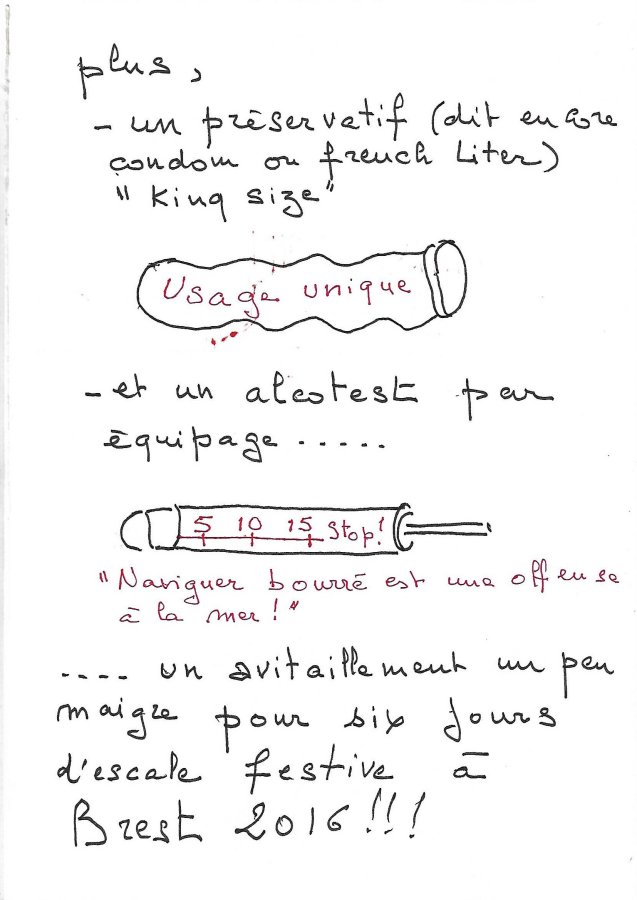 plus,
- un préservatif (dit encore
condom ou french Liter)
"King size"
Usage unique
- et un alcotest par
équipage .....
5 10 15 Stop!
"Naviguer bourré est une offense
à la mer!"
.... un avitaillement un peu
maigre pour six jours
d'escale festive à
Brest 2016!!!